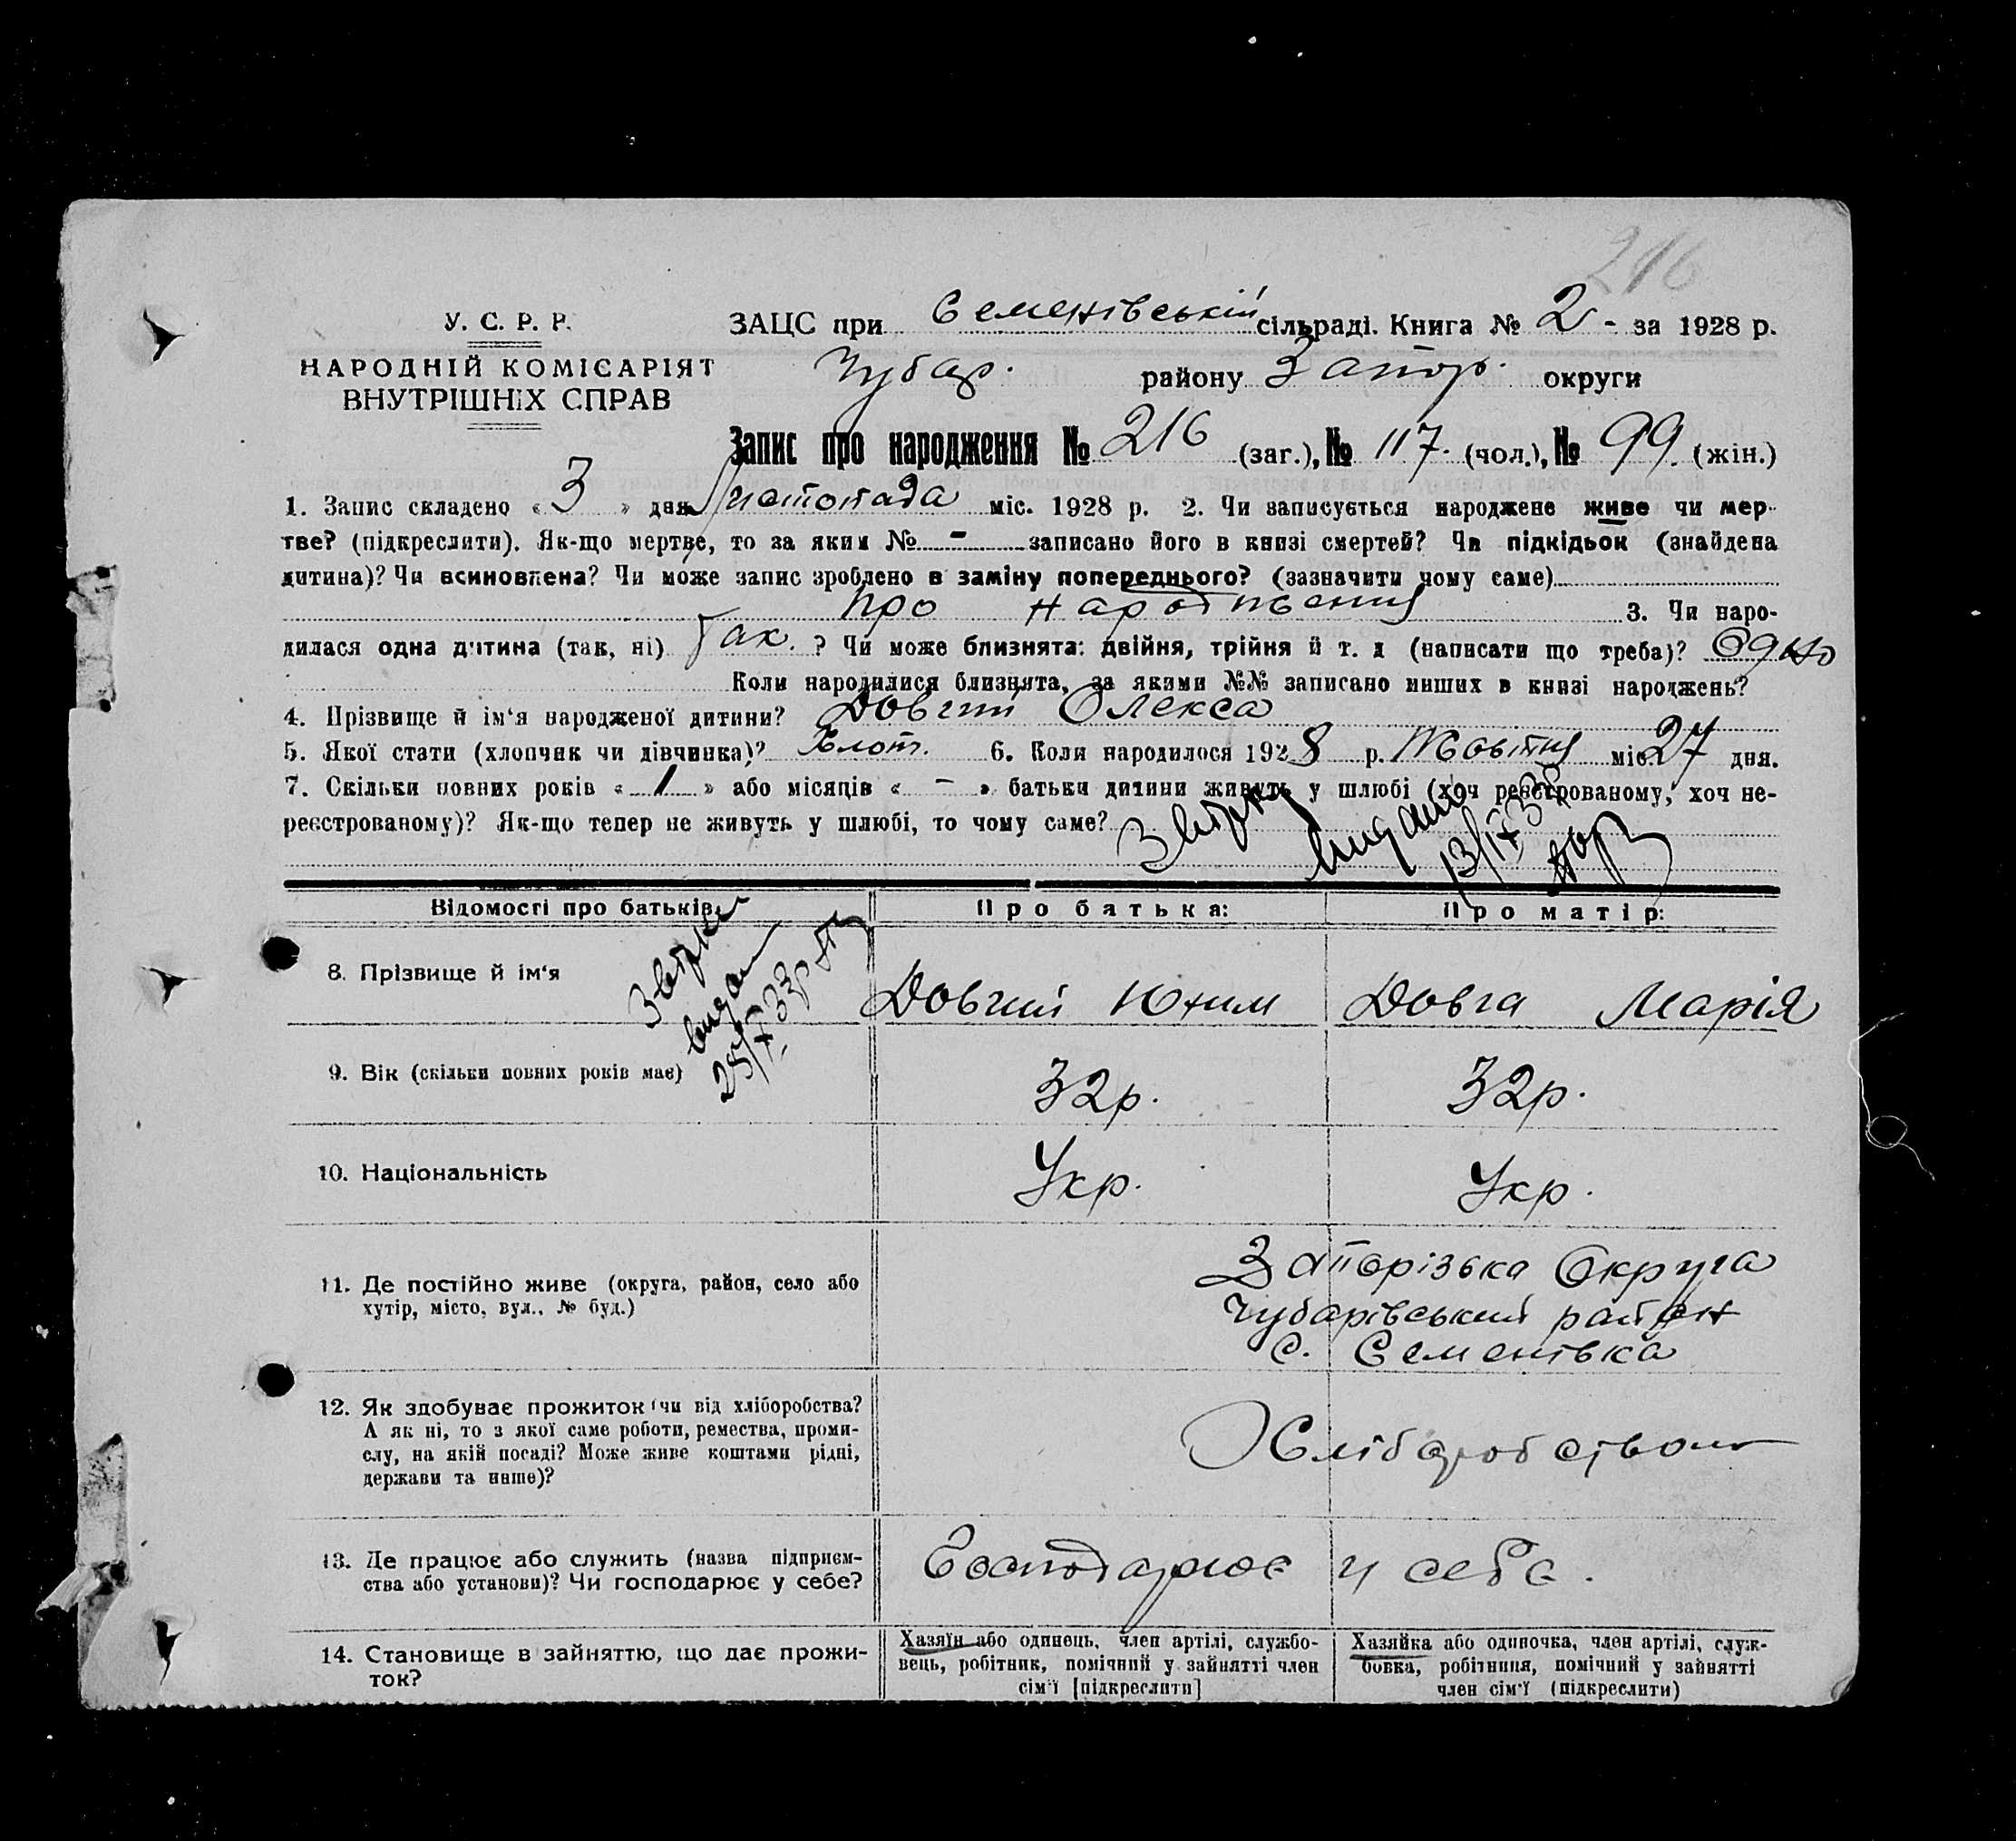 216
У. С. Р. Р.
НАРОДНІЙ КОМІСАРІЯТ
ВНУТРІШНІХ СПРАВ
ЗАЦС при Семенівській сільраді. Книга № 2 - за 1928 р.
Чубар. району Запор. округи
Запис про народження № 216 (заг.), № 117. (чол.), № 99. (жін.)
1. Запис складено « 3 » дня Листопада міс. 1928 р. 2. Чи записується народжене живе чи мер-
тве? (підкреслити). Як-що мертве, то за яким № - записано його в книзі смертей? Чи підкідьок (знайдена
дитина)? Чи всиновлена? Чи може запис зроблено в заміну попереднього? (зазначити чому саме)
про народження 3. Чи наро-
дилася одна дитина (так, ні) Так. ? Чи може близнята: двійня, трійня й т. д (написати що треба)? Одно
Коли народилися близнята, за якими №№ записано инших в книзі народжень?
4. Прізвище й ім‘я народженої дитини? Довгий Олекса
5. Якої стати (хлопчик чи дівчинка)? Хлоп. 6. Коли народилося 1928 р. Жовтня міс. 27 дня.
7. Скільки повних років « 1 » або місяців « - » батьки дитини живуть у шлюбі (хоч реєстрованому, хоч не-
реєстрованому)? Як-що тепер не живуть у шлюбі, то чому саме?
Відомості про батьків: Про батька: Про матір:
8. Прізвище й ім‘я Довгий Юхим Довга Марія
9. Вік (скільки повних років має) 32р. 32р.
10. Національність Укр. Укр.
11. Де постійно живе (округа, район, село або
хутір, місто, вул., № буд.)
Запорізька Округа
Чубарівський район
с. Семенівка
12. Як здобуває прожиток (чи від хліборобства?
А як ні, то з якої саме роботи, ремества, проми-
слу, на якій посаді? Може живе коштами рідні,
держави та инше)?
Хліборобством
13. Де працює або служить (назва підприєм-
ства або установи)? Чи господарює у себе?
Господарює у себе.
14. Становище в зайняттю, що дає прожи-
ток?
Хазяїн або одинець, член артілі, службо-
вець, робітник, помічний у зайнятті член
сім'ї [підкреслити]
Хазяйка або одиночка, член артілі, служ-
бовка, робітниця, помічний у зайнятті
член сім'ї (підкреслити)